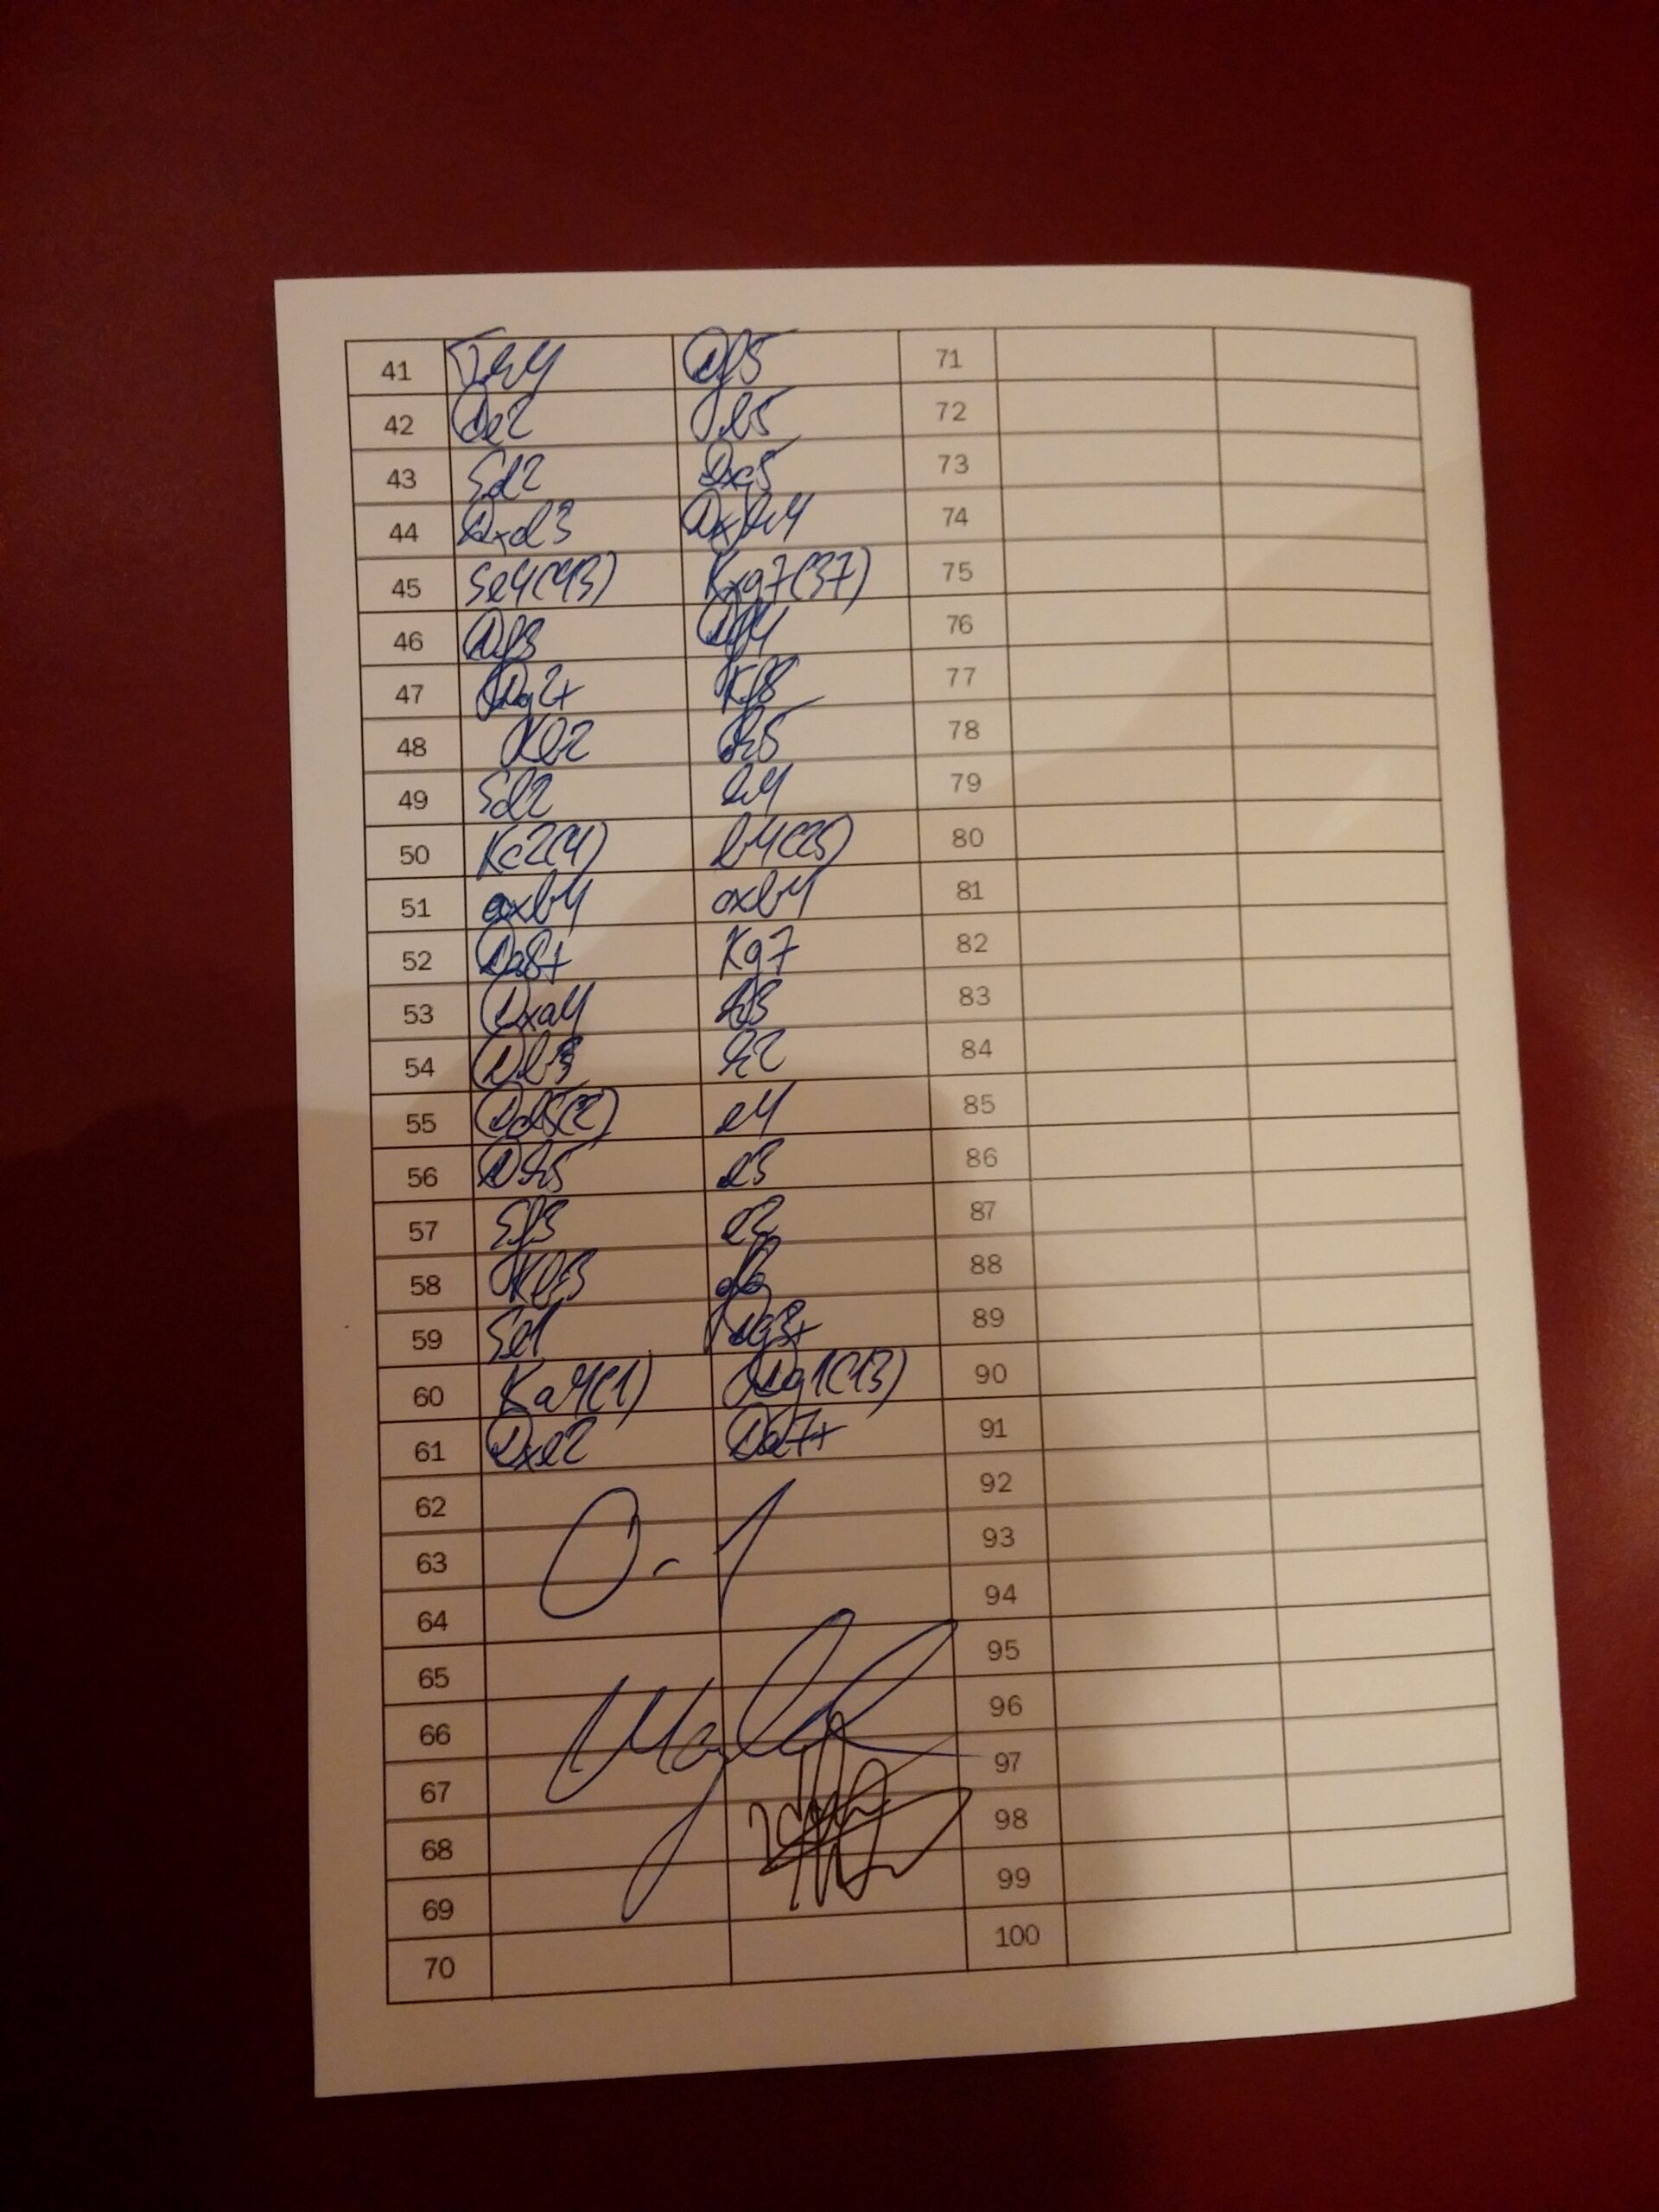 41 Th4 Df5 71
42 De2 b5 72
43 Sd2 Dxg5 73
44 Dxd3 Dxh4 74
45 Se4(43) Kxg7(37) 75
46 Df3 Df4 76
47 Dg2+ Kf8 77
48 Kb2 h5 78
49 Sd2 h4 79
50 Kc2(4) b4(25) 80
51 axb4 axb4 81
52 Da8+ Kg7 82
53 Dxa4 h3 83
54 Db3 h2 84
55 Dd5(2) e4 85
56 Dh5 e3 86
57 Sf3 e2 87
58 Kb3 f6 88
59 Se1 Dg3+ 89
60 Ka4(1) Dg1(13) 90
61 Dxe2 Da7+ 91
62 92
63 0-1 93
64 94
65 95
66 96
67 97
68 98
69 99
70 100